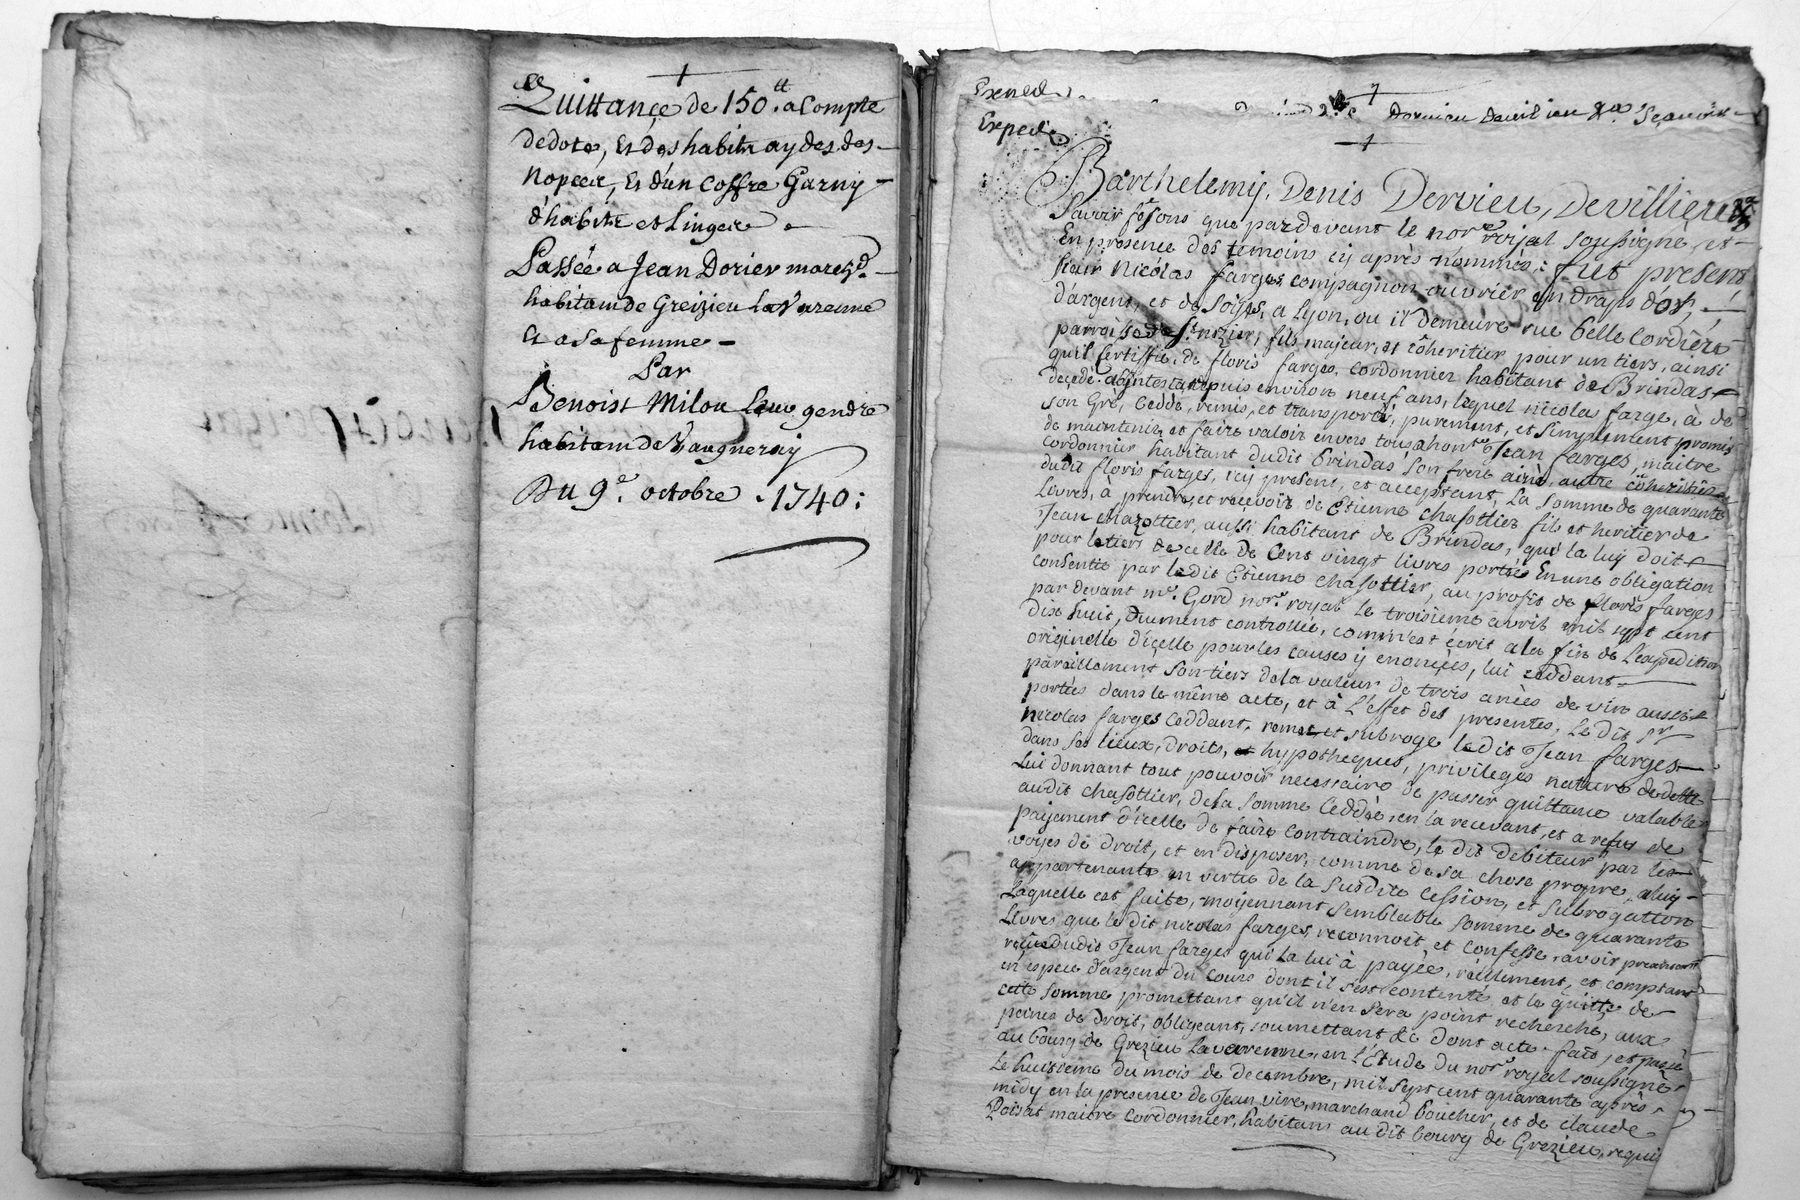 Quittance de 150.tt a Compte
de dote, et des habits aydes des
nopces, et d'un coffre Garny
d'habits et linges
Passée a Jean Dorier march.d
habitant de Greizieu la Varenne
et a sa femme
Par
Benoist Milou leur gendre
habitant de Vaugneray
Du 9.e octobre 1740:
Exped.
Barthelemy, Denis Dervieu, Devilliers
Savoir fesons que pardevant le nore. royal soussigné, et
En presence des temoins cy après nommés: fut present
sieur Nicolas farges compagnon ouvrier en draps d'or,
d'argent, et de soÿes, a Lyon, ou il demeure rue belle cordière
parroisse de St. nizier, fils majeur, et cöheritier pour un tiers, ainsi
qu'il certiffie, de floris farges, cordonnier habitant de Brindas
decedé abintestat depuis environ neuf ans, lequel nicolas farge, à de
son Gré, Ceddé, remis, et transporté, purement, et simplement promis
de maintenir et faire valoir envers tous a honre. Jean farges, maitre
cordonnier habitant dudit Brindas son frere ainé, autre cöheritier
dudit floris farges, icy present, et acceptant, La somme de quarante
Livres, à prendre, et reçevoir de Etienne chasottier fils et heritier de
Jean chazottier, aussi habitant de Brindas, qui la luy doit
pour le tiers de celle de Cent vingt livres portée En une obligation
consentie par ledit Etienne chasottier, au profit de floris farges
par devant me. Gord nore. royal le troisieme avril mil sept cent
dix huit, duement controllée, comm'est écrit a la fin de L'expedition
originelle d'içelle pour les causes y enonçées, lui ceddant
pareillement son tiers de la valeur de trois anées de vin aussi
portées dans le même acte, et à L'effet des presentes, Le dit sr
nicolas farges Ceddant, remet et subroge ledit Jean farges
dans ses lieux, droits, hypotheques, privileges nature de dette
Lui donnant tout pouvoir necessaire de passer quittance valable
audit chasottier, de la somme Ceddée, en la recevant, et a refus de
payement d'icelle de faire contraindre, le dit debiteur par les
voyes de droit, et en disposer, comme de sa chose propre, a luy
appartenante en vertu de la susdite Cession, et subrogation
Laquelle est faite, moÿennant semblable somme de quarante
Livres que le dit nicolas farges, reconnoit, et confesse, avoir
reçüe dudit Jean farges qui la lui à payée, réellement, et comptant
en espece d'argent du cours dont il s'est contenté et le quitte de
cette somme promettant qu'il n'en sera point recherché, aux
peines de droit, obligeant, soumettant &c dont acte fait, et passé
au bourg de Grezieu Lavarenne, en l'Etude du nore. royal soussigné
Le huitieme du mois de decembre, mil sept cent quarante après
midy en la presence de Jean vire, marchand boucher, et de claude
Poisat maitre cordonnier, habitans au dit bourg de Grezieu, requis